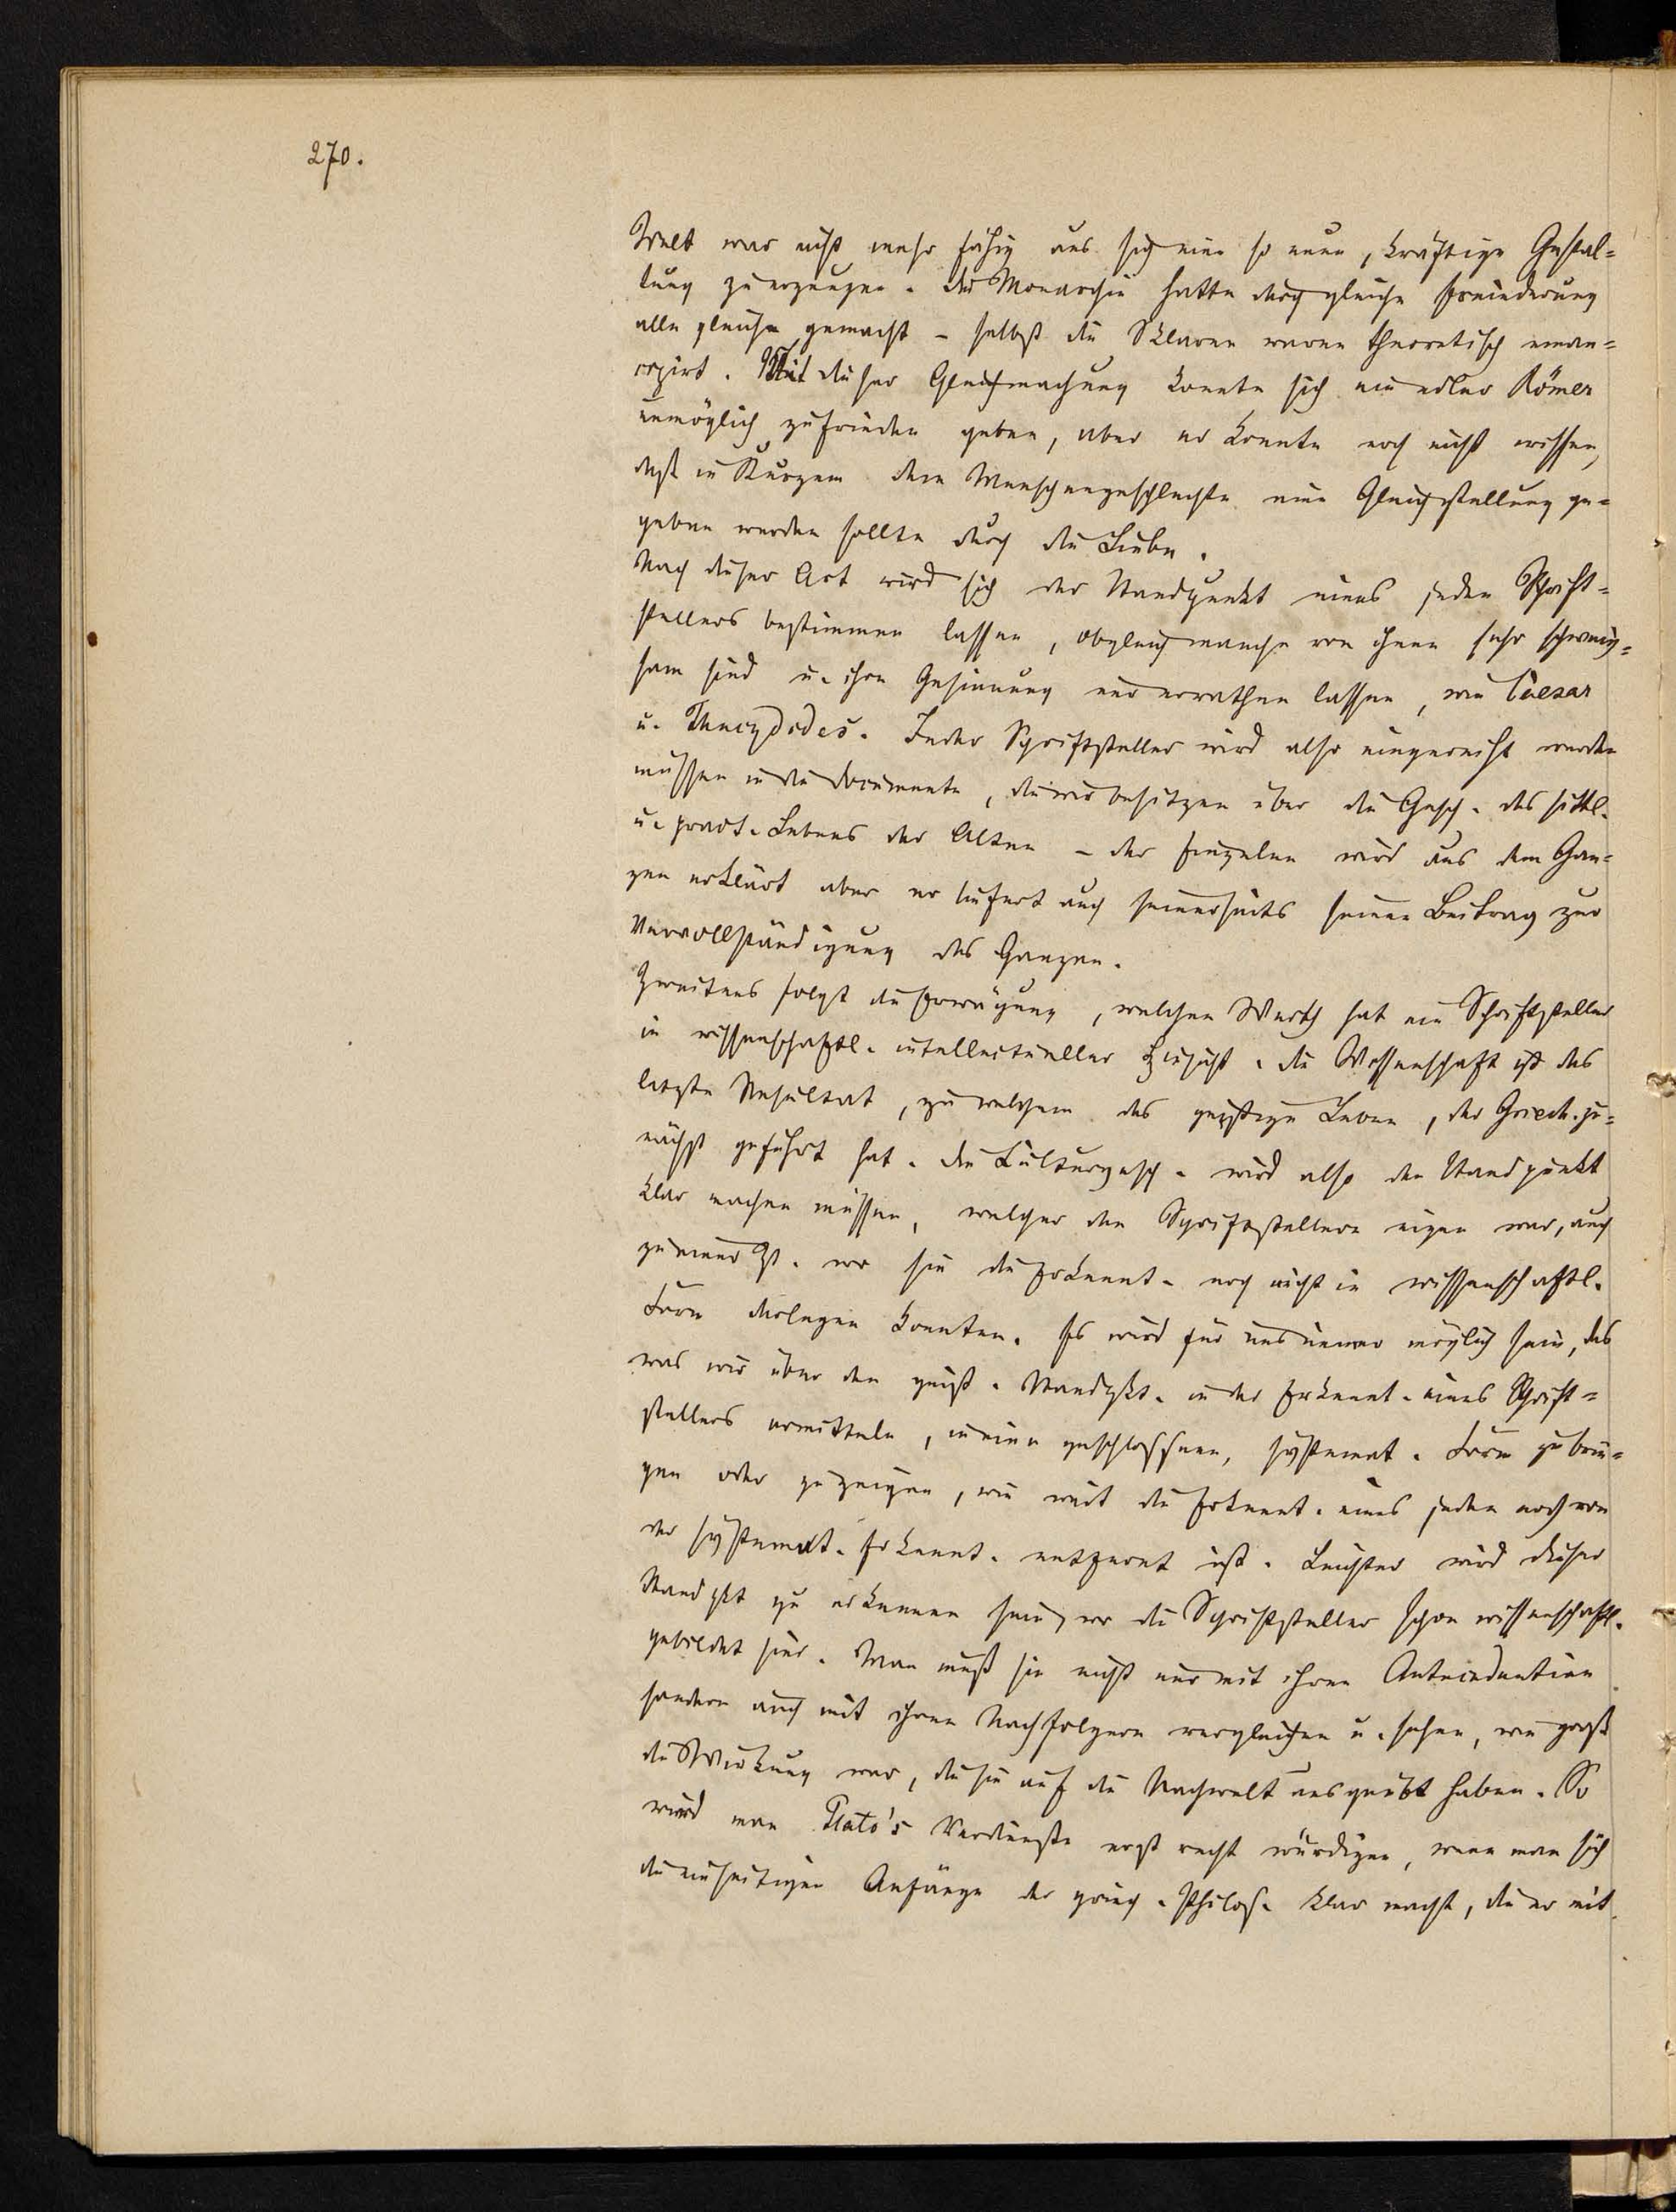 270.
Welt war nicht mehr fähig aus sich eine so neue, kräftige Gestal-
tung zu erzeugen. Die Monarchie hatte durch gleiche Erniederung
alle gleich gemacht – selbst die Sklaven waren theoretisch eman-
cipirt. Mit dieser Gleichmachung konnte sich ein edler Römer
unmöglich zufrieden geben, aber er konnte noch nicht wissen,
daß in Kurzem dem Menschengeschlechte eine Gleichstellung ge-
geben werden sollte durch die Liebe.
Nach dieser Art wird sich der Standpunkt eines jeden Schrift-
stellers bestimmen lassen, obgleich manche von ihnen sehr schweig-
sam sind u. ihre Gesinnung nur errathen lassen, wie Caesar
u. Thucydides. Jeder Schriftsteller wird also eingereiht werden
müssen in die Documente, die wir besitzen über die Gesch. des sittl.
u. pract. Lebens der Alten – der Einzelne wird aus dem Gan-
zen erklärt aber er liefert auch seinerseits seinen Beitrag zur
Vervollständigung des Ganzen.
Zweitens folgt die Erwägung, welchen Werth hat ein Schriftsteller
in wissenschaftl. intellectueller Hinsicht. Die Wissenschaft ist das
letzte Resultat, zu welchem das geistige Leben, der Griech. zu-
nächst geführt hat. Die Culturgesch. wird also den Standpunkt
klar machen müssen, welcher den Schriftstellern eigen war, auch
zu einer Zt. wo sie die Erkennt. noch nicht in wissenschaftl.
Form darlegen konnten. Es wird für uns immer möglich sein, das
was wir über den geist. Standpkt. in der Erkennt. eines Schrift-
stellers ermitteln, in eine geschlossene, systemat. Form zu brin-
gen oder zu zeigen, wie weit die Erkennt. eines jeden noch von
der systemat. Erkennt. entfernt ist. Leichter wird dieser
Standpkt zu erkennen sein, wo die Schriftsteller schon wissenschaftl.
gebildet sind. Man muß sie nicht nur mit ihren Antecedentien
sondern auch mit ihren Nachfolgern vergleichen u. sehen, wie groß
die Wirkung war, die sie auf die Nachwelt ausgeübt haben. So
wird man Plato's Verdienste erst recht würdigen, wenn man sich
die einseitigen Anfänge der griech. Philos. klar macht, die er mit